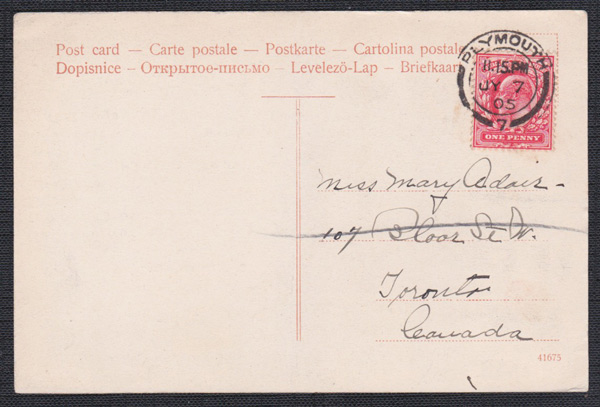 Post card — Carte postale — Postkarte — Cartolina postale
Dopisnice — Открытое-письмо — Levelező-Lap — Briefkaart
PLYMOUTH
11.15 PM
JY 7
05
7
ONE PENNY
Miss Mary Adair
107 Bloor St W.
Toronto
Canada
41675